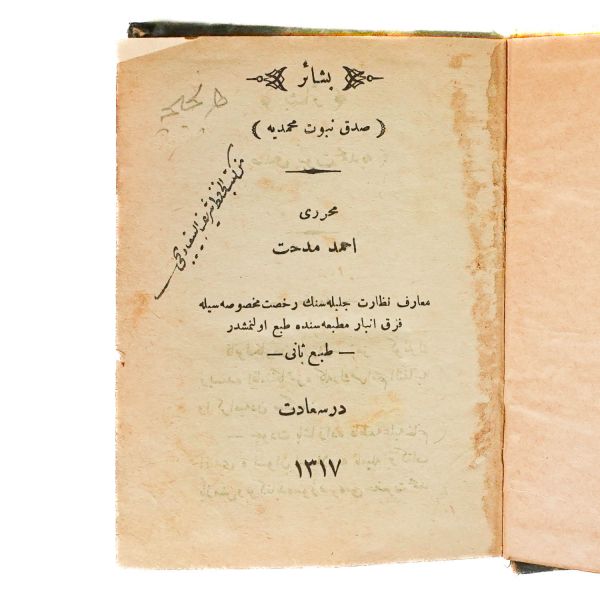 بشائر
( صدق نبوت محمدیه )
محرری
احمد مدحت
معارف نظارت جلیله‌سنك رخصت مخصوصه سیله
قرق انبار مطبعه سنده طبع اولنمشدر
— طبع ثانی —
درسعادت
۱۳۱۷